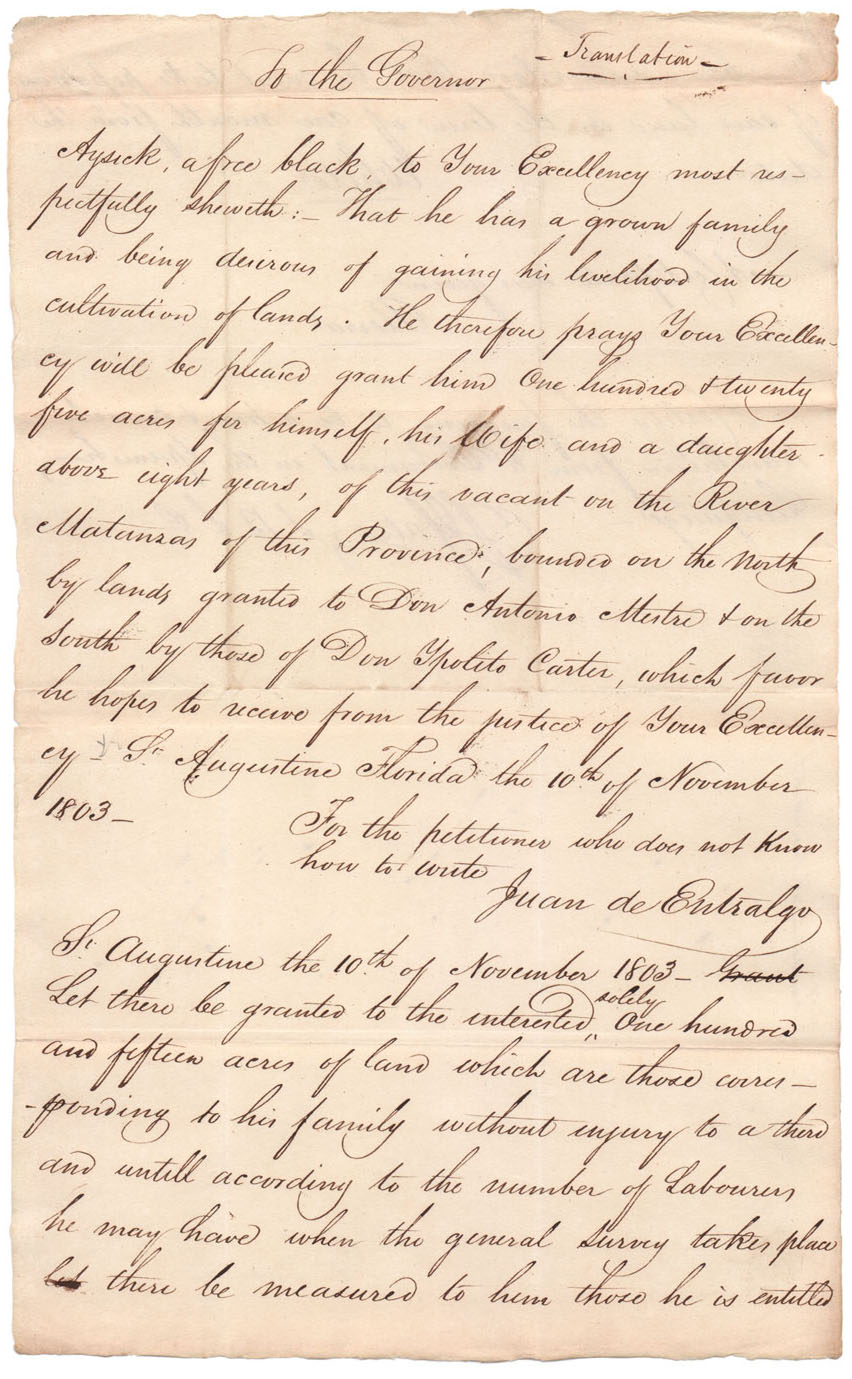 - Translation -
To the Governor
Aysick, a free black, to Your Excellency most res-
pectfully sheweth: - That he has a grown family
and being desirous of gaining his livelihood in the
cultivation of lands. He therefore prays Your Excellen-
cy will be pleased grant him One hundred & twenty
five acres for himself, his Wife and a daughter
above eight years, of this vacant on the River
Matanzas of this Province, bounded on the North
by lands granted to Don Antonio Mestre & on the
South by those of Don Ypolito Carter, which favor
he hopes to receive from the justice of Your Excellen-
cy St. Augustine Florida the 10th of November
1803 -
For the petitioner who does not Know
how to write
Juan de Entralgo
St. Augustine the 10th of November 1803 - Grant
Let there be granted to the interested, solely One hundred
and fifteen acres of land which are those corres-
-ponding to his family without injury to a third
and untill according to the number of Labourers
he may have when the general survey takes place
let there be measured to him those he is entitled